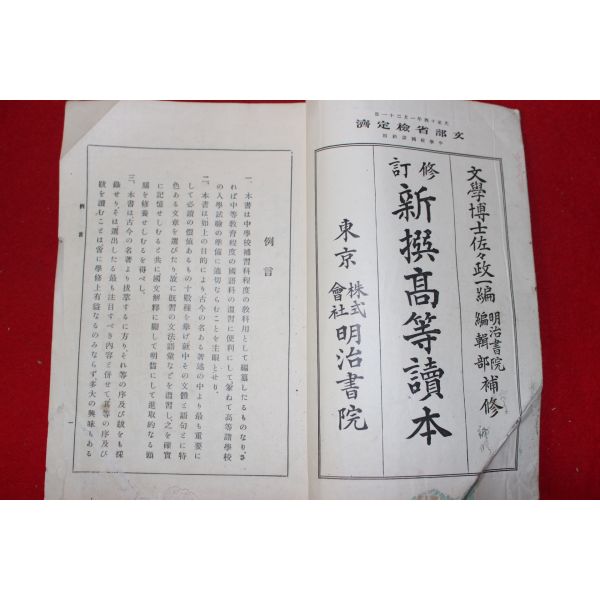 文部省檢定濟
文學博士佐々政一編 明治書院編輯部 補修
修訂 新撰高等讀本
東京 株式會社 明治書院
例言
一、本書は中學校補習科程度の敎科用として編纂したるものなり、さ
れば中等敎育程度の國語科の温習に便利にして兼ねて高等諸學校
の入學試驗の準備に適切ならむことを主眼とせり。
二、本書は如上の目的により古今の名ある著述の中より最も重要に
して必讀の價値あるもの十數種を擧げ就中その文體と語句とに特
色ある文章を選びたり、故に既習の文法語彙などを温習し、之を確實
に記憶せしむると共に國文解釋に關して明晳にして進取的なる頭
腦を修養せしむるを得べし。
三、本書は古今の名著より拔萃するに方り、それ等の序及び跋をも採
錄せり、そは選出したる最も注目すべき内容と併せて其等の序及び
跋を讀むことは啻に學修上有益なるのみならず多大の興味もある
例言
一